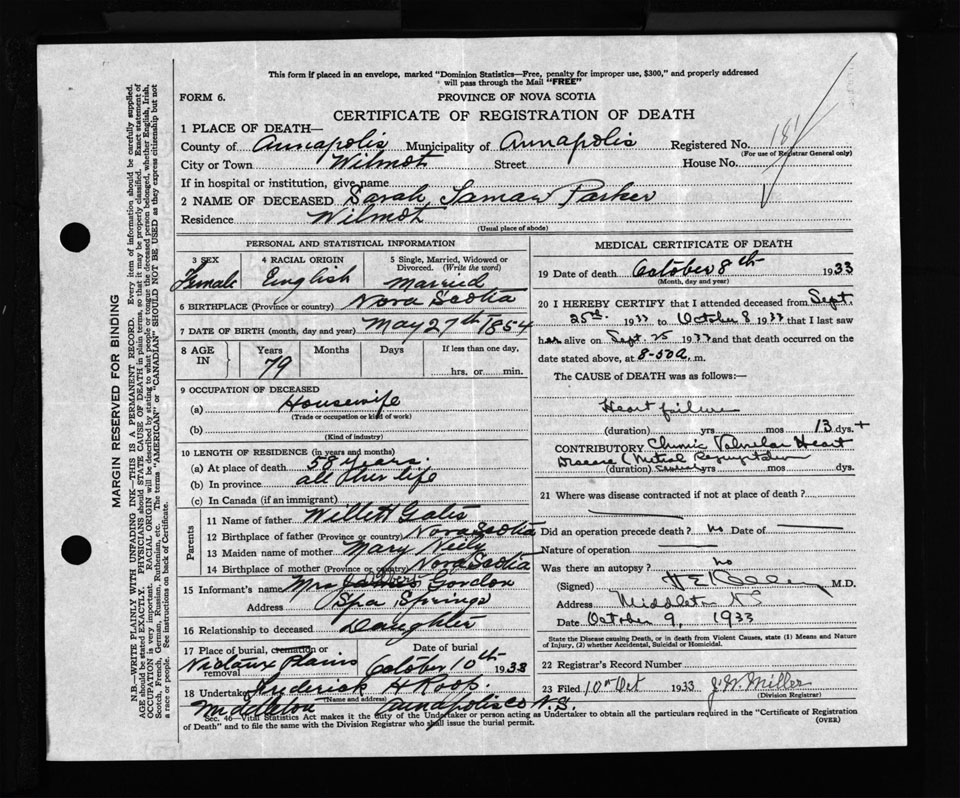 This form if placed in an envelope, marked "Dominion Statistics—Free, penalty for improper use, $300," and properly addressed
will pass through the Mail "FREE"
FORM 6.
PROVINCE OF NOVA SCOTIA
CERTIFICATE OF REGISTRATION OF DEATH
1 PLACE OF DEATH—
County of Annapolis Municipality of Annapolis Registered No. 181
(For use of Registrar General only)
City or Town Wilmot Street House No.
If in hospital or institution, give name
2 NAME OF DECEASED Sarah Parker
Residence Wilmot
(Usual place of abode)
PERSONAL AND STATISTICAL INFORMATION
3 SEX Female
4 RACIAL ORIGIN English
5 Single, Married, Widowed or Divorced. (Write the word) Married
6 BIRTHPLACE (Province or country) Nova Scotia
7 DATE OF BIRTH (month, day and year) May 27th 1854
8 AGE IN Years 79 Months Days If less than one day, hrs. or min.
9 OCCUPATION OF DECEASED
(a) Housewife
(Trade or occupation or kind of work)
(b)
(Kind of industry)
10 LENGTH OF RESIDENCE (in years and months)
(a) At place of death 58 years.
(b) In province all her life
(c) In Canada (if an immigrant)
Parents
11 Name of father Willett Gates
12 Birthplace of father (Province or country) Nova Scotia
13 Maiden name of mother Mary Neily
14 Birthplace of mother (Province or country) Nova Scotia
15 Informant's name Mrs Gordon
Address Spa Springs
16 Relationship to deceased Daughter
17 Place of burial, cremation or removal Nictaux Plains
Date of burial October 10th 1933
18 Undertaker Frederick H Roop
(Name and address)
Middleton Annapolis Co N.S.
MEDICAL CERTIFICATE OF DEATH
19 Date of death October 8th 1933
(Month, day and year)
20 I HEREBY CERTIFY that I attended deceased from Sept.
25th 1933 to October 8 1933 that I last saw
her alive on Sept. 25 1933 and that death occurred on the
date stated above, at 8-50 a. m.
The CAUSE of DEATH was as follows:—
Heart failure
(duration) yrs mos 13 dys. +
CONTRIBUTORY Chronic Valvular Heart
Disease (Mitral Regurgitation
(duration) yrs mos dys.
21 Where was disease contracted if not at place of death?
Did an operation precede death? no Date of
Nature of operation
Was there an autopsy? no
(Signed) M.D.
Address Middleton NS
Date October 9, 1933
State the Disease causing Death, or in death from Violent Causes, state (1) Means and Nature
of Injury, (2) whether Accidental, Suicidal or Homicidal.
22 Registrar's Record Number
23 Filed 10th Oct 1933 J. W. Miller
(Division Registrar)
Sec. 46—Vital Statistics Act makes it the duty of the Undertaker or person acting as Undertaker to obtain all the particulars required in the "Certificate of Registration
of Death" and to file the same with the Division Registrar who shall issue the burial permit.
(OVER)
MARGIN RESERVED FOR BINDING
N.B.—WRITE PLAINLY WITH UNFADING INK—THIS IS A PERMANENT RECORD. Every item of information should be carefully supplied.
AGE should be stated EXACTLY. PHYSICIANS should STATE CAUSE OF DEATH in plain terms, so that it may be properly classified. Exact statement of
OCCUPATION is very important. RACIAL ORIGIN will be described by stating to what people or tongue the deceased person belonged, whether English, Irish,
Scotch, French, German, Russian, Ruthenian, etc. The terms "AMERICAN" or "CANADIAN" SHOULD NOT BE USED as they express citizenship but not
a race or people. See instructions on back of Certificate.